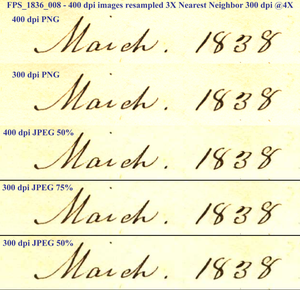 FPS_1836_008 - 400 dpi images resampled 3X Nearest Neighbor 300 dpi @4X
400 dpi PNG
March. 1838
300 dpi PNG
March. 1838
400 dpi JPEG 50%
March. 1838
300 dpi JPEG 75%
March. 1838
300 dpi JPEG 50%
March. 1838